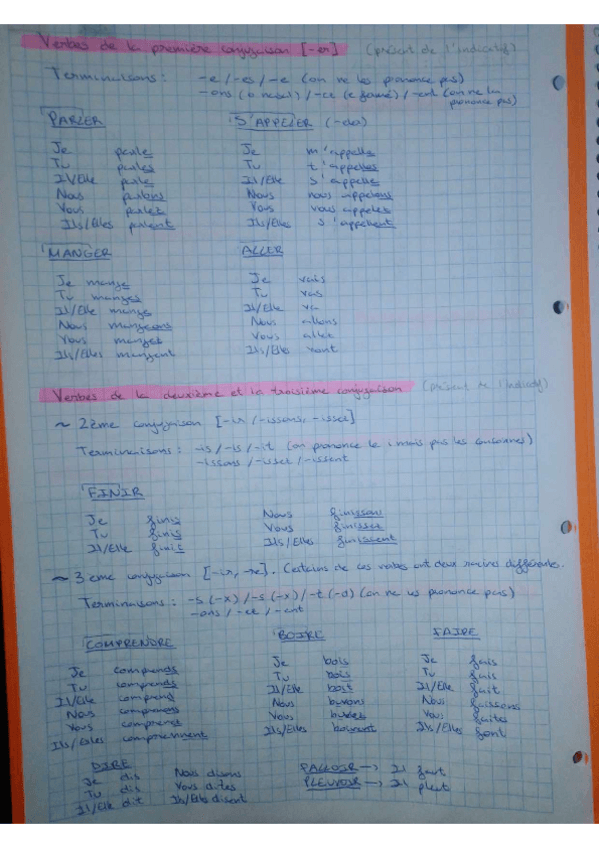 Verbes de la première conjugaison [-er] (présent de l'indicatif)
Terminaisons: -e/-es/-e (on ne les prononce pas)
-ons (o nasal) / -ez (e fermé) / -ent (on ne le prononce pas)
PARLER
Je parle
Tu parles
Il/Elle parle
Nous parlons
Vous parlez
Ils/Elles parlent
S'APPELER
Je m'appelle
Tu t'appelles
Il/Elle s'appelle
Nous nous appelons
Vous vous appelez
Ils/Elles s'appellent
MANGER
Je mange
Tu manges
Il/Elle mange
Nous mangeons
Vous mangez
Ils/Elles mangent
ALLER
Je vais
Tu vas
Il/Elle va
Nous allons
Vous allez
Ils/Elles vont
Verbes de la deuxième et la troisième conjugaison (présent de l'indicatif)
~ 2ème conjugaison [-ir/-issons, -issez]
Terminaisons: -is/-is/-it (on prononce le i mais pas les consonnes)
-issons/-issez/-issent
FINIR
Je finis
Tu finis
Il/Elle finit
Nous finissons
Vous finissez
Ils/Elles finissent
~ 3ème conjugaison [-ir, -re]. Certains de ces verbes ont deux racines différentes.
Terminaisons: -s (-x) /-s (-x) /-t (-d) (on ne les prononce pas)
-ons/-ez/-ent
COMPRENDRE
Je comprends
Tu comprends
Il/Elle comprend
Nous comprenons
Vous comprenez
Ils/Elles comprennent
BOIRE
Je bois
Tu bois
Il/Elle boit
Nous buvons
Vous buvez
Ils/Elles boivent
FAIRE
Je fais
Tu fais
Il/Elle fait
Nous faisons
Vous faites
Ils/Elles font
DIRE
Je dis
Tu dis
Il/Elle dit
Nous disons
Vous dites
Ils/Elles disent
FALLOIR → Il faut
PLEUVOIR → Il pleut